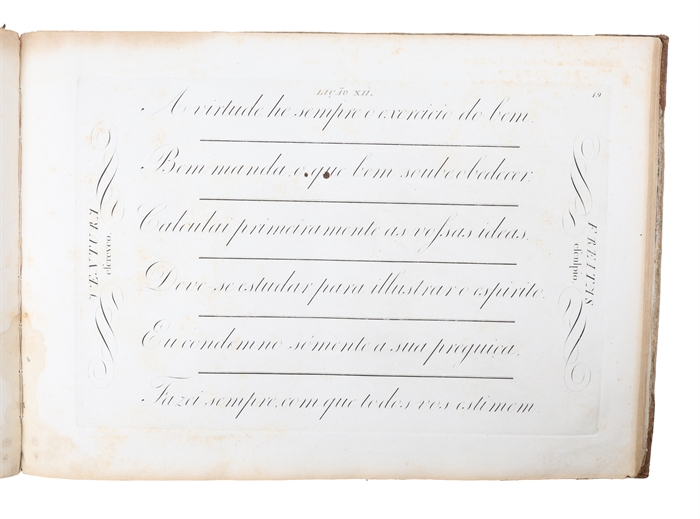 LIÇÃO XII.
19
A virtude he sempre o exercicio do bem.
Bem manda o que bem soube obedecer.
Calculai primeiramente as vossas ideas.
Deve se estudar para illustrar o espirito.
Eu condemno sómente a sua preguiça.
Fazei sempre com que todos vos estimem
VENTURA
escreveo.
FREITAS
esculpio.